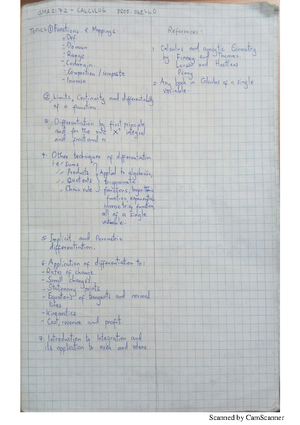 SMA 2172 - CALCULUS
TOPICS ① Functions & Mappings
- Def
- Domain
- Range
- Codomain
- Composition / composite
- Inverse
References:
1. Calculus and Analytic Geometry
by Finney and Thomas.
2. Any book in Calculus of a Single
variable
② Limits, Continuity and differentiability
of a function
3. Differentiation by first principle
and for the rule integral
and fractional n
4. Other techniques of differentiation
i.e - Sums
- Products
- Quotients
- Chain rule
Applied to algebraic,
trigonometric
function, exponential
all of a single
variable.
5. Implicit and Parametric
differentiation.
6. Application of differentiation to:
- Rates of change
- Small changes
- Stationary points
- Equations of tangents and normal
lines
- Kinematics
- Cost, revenue and profit.
7. Introduction to Integration and
its application to
Scanned by CamScanner